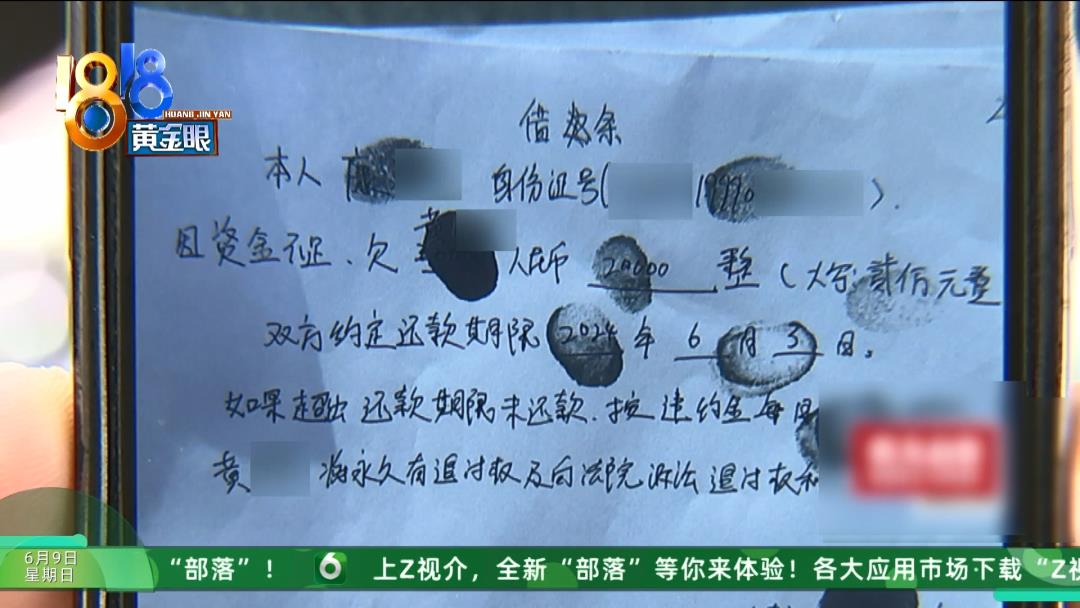 1818
HUANG JIN YAN
黄金眼
借款条
本人 身份证号( 19990 ).
因资金不足、欠 黄 人民币 20000 整 (大写:贰佰元整
双方约定还款期限 2024 年 6 月 3 日。
如果超出还款期限未还款、按违约金每日
黄 将永久有追讨权及向法院诉法追讨权和
6月9日
星期日
“部落”! 6 上Z视介,全新“部落”等你来体验!各大应用市场下载“Z视